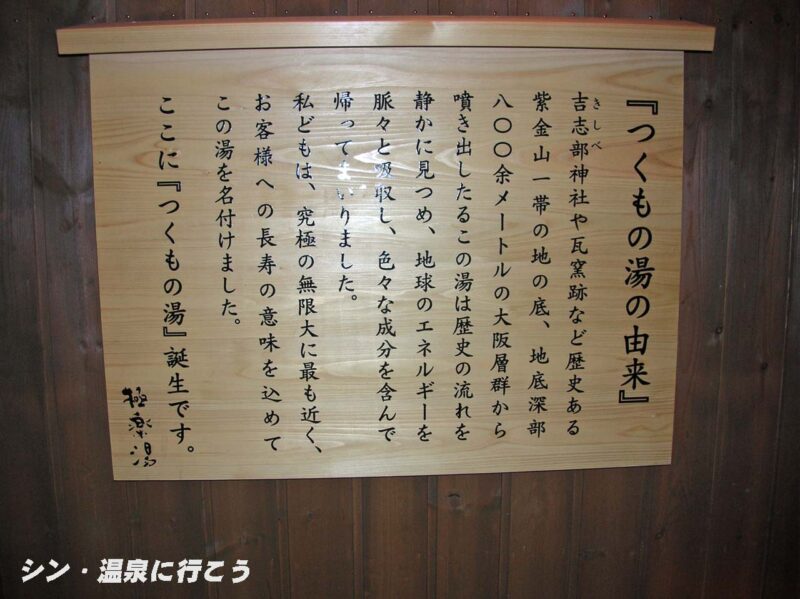 『つくもの湯の由来』
きしべ
吉志部神社や瓦窯跡など歴史ある
紫金山一帯の地の底、地底深部
八〇〇余メートルの大阪層群から
噴き出したるこの湯は歴史の流れを
静かに見つめ、地球のエネルギーを
脈々と吸収し、色々な成分を含んで
帰ってまいりました。
私どもは、究極の無限大に最も近く、
お客様への長寿の意味を込めて
この湯を名付けました。
ここに『つくもの湯』誕生です。
極楽湯
シン・温泉に行こう